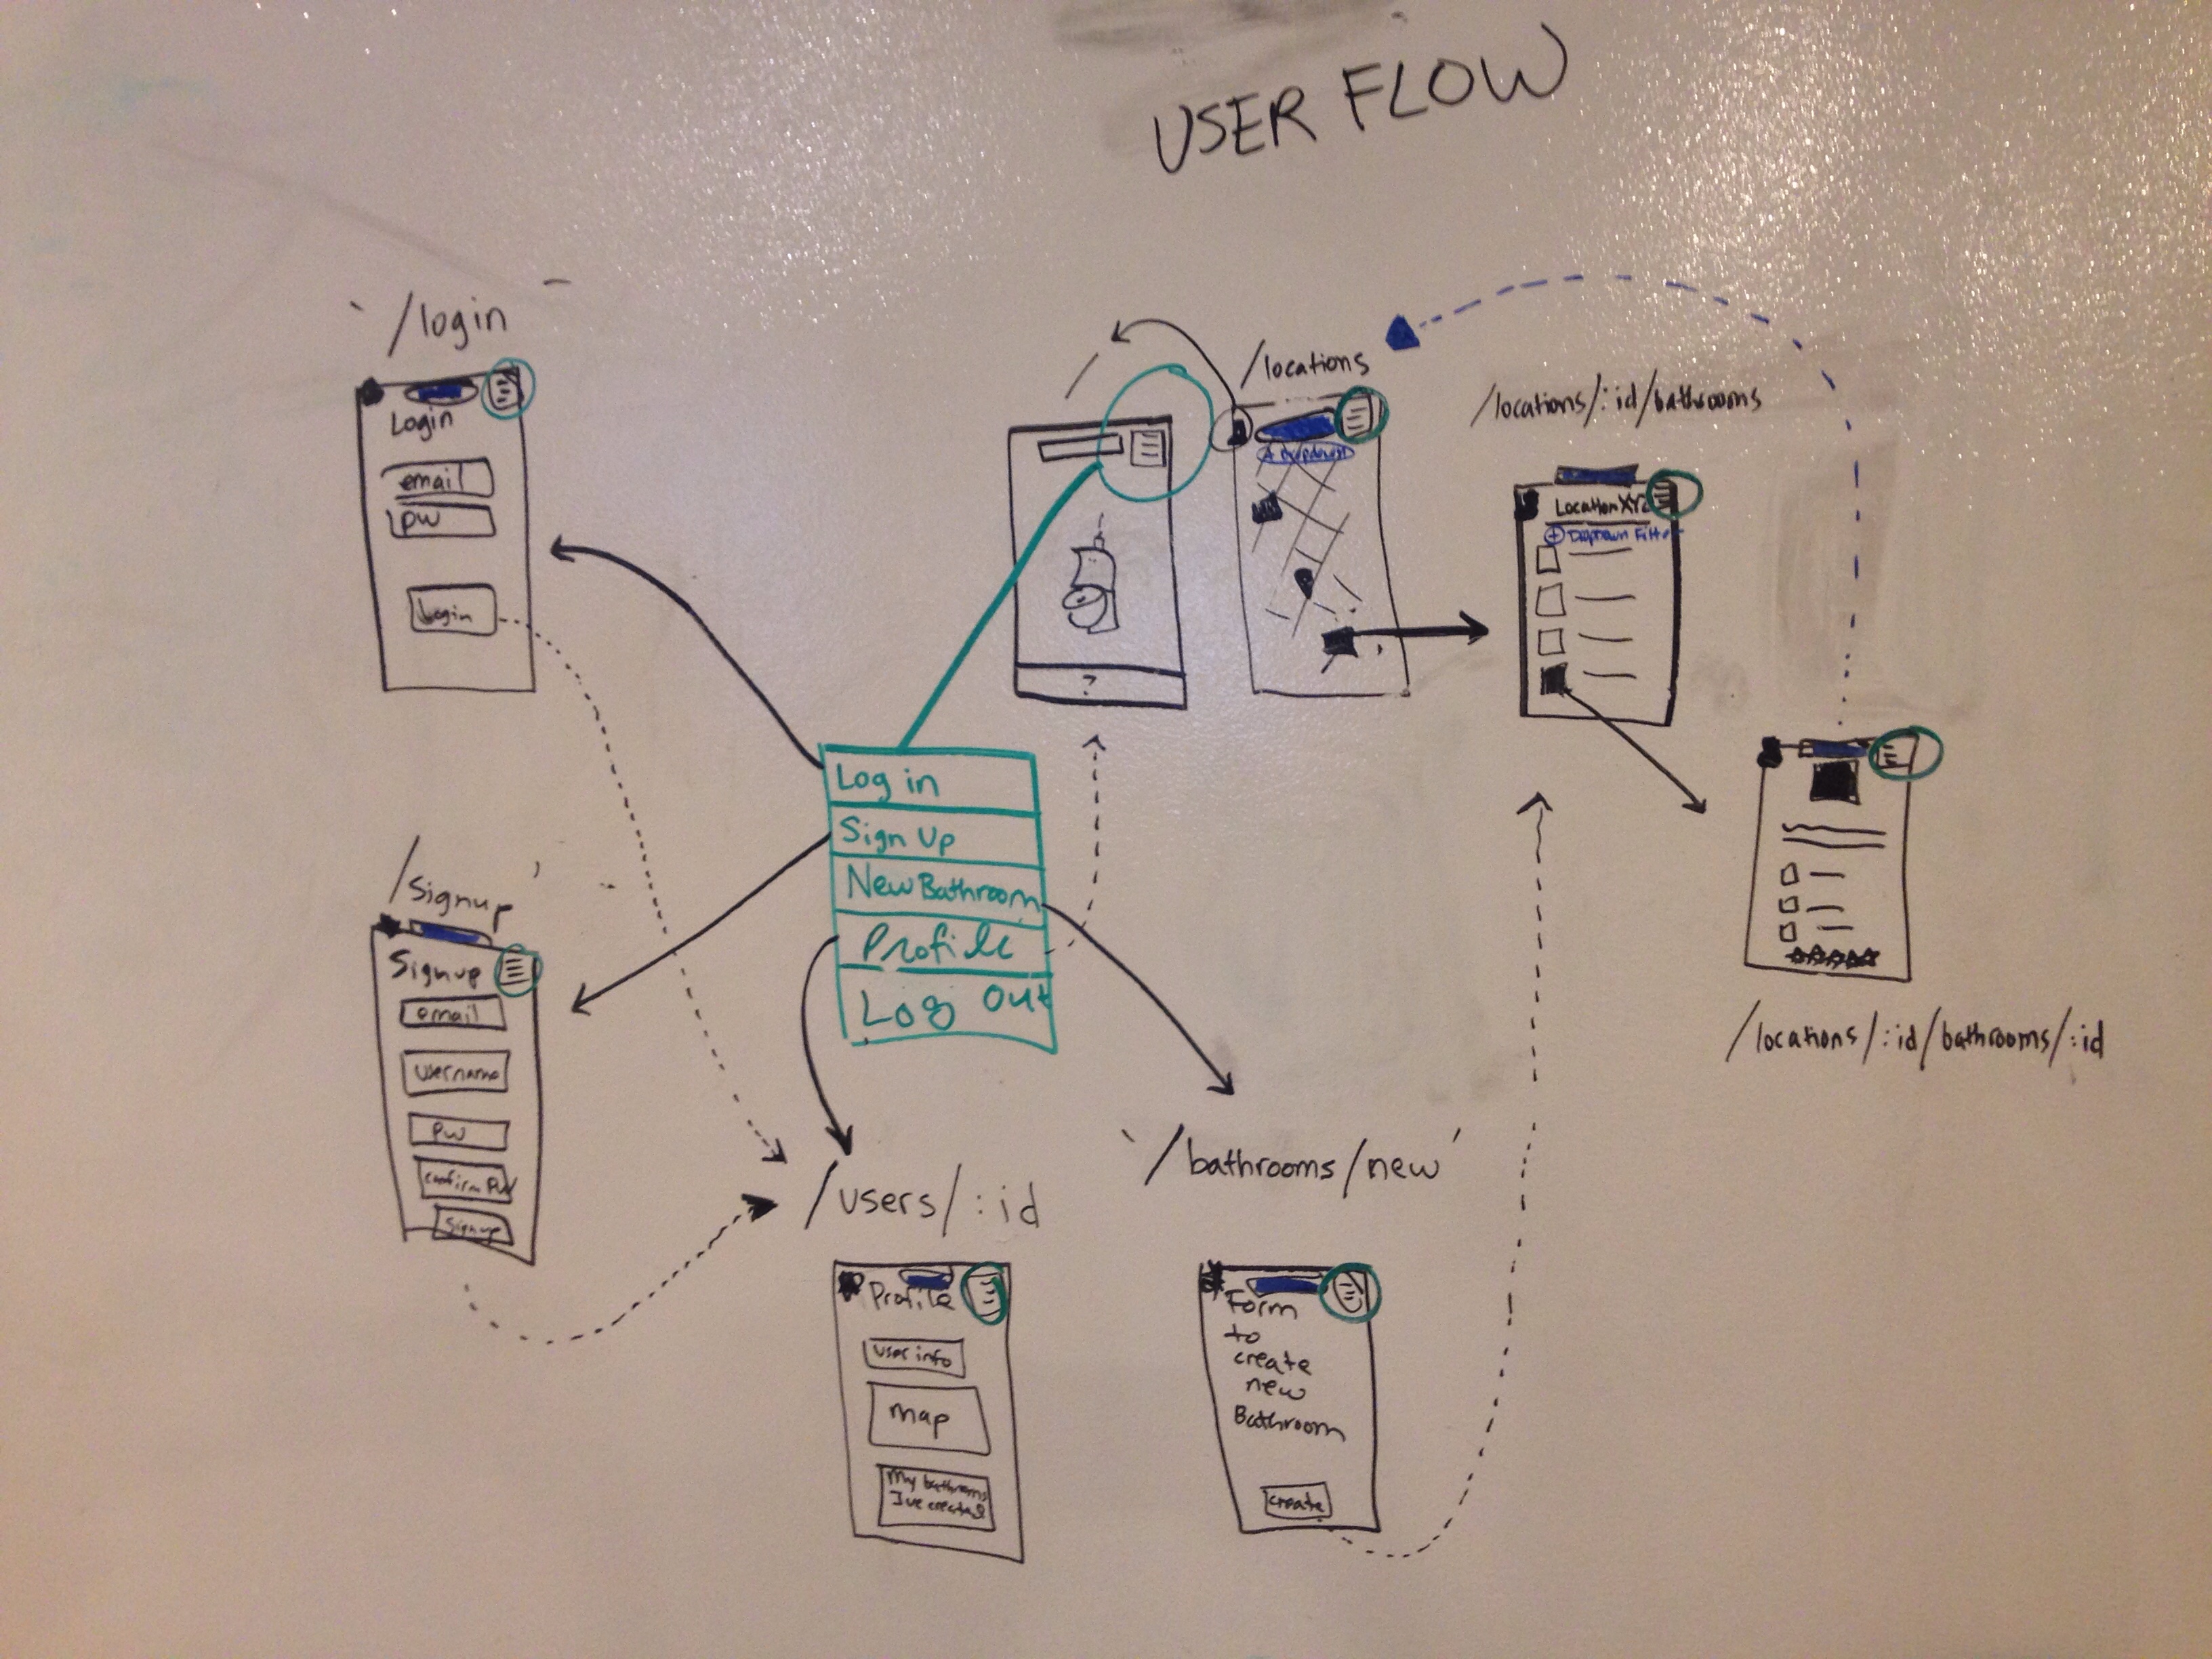 USER FLOW
`/login
Login
email
pw
Login
/
?
/locations
/locations/:id/bathrooms
Location XYZ
+ Dropdown Filter
Log in
Sign Up
New Bathroom
Profile
Log Out
/signup'
Signup
email
username
PW
confirm PW
Signup
/locations/:id/bathrooms/:id
/users/:id
Profile
user info
map
My bathrooms
I've created
`/bathrooms/new'
Form
to
create
new
Bathroom
create